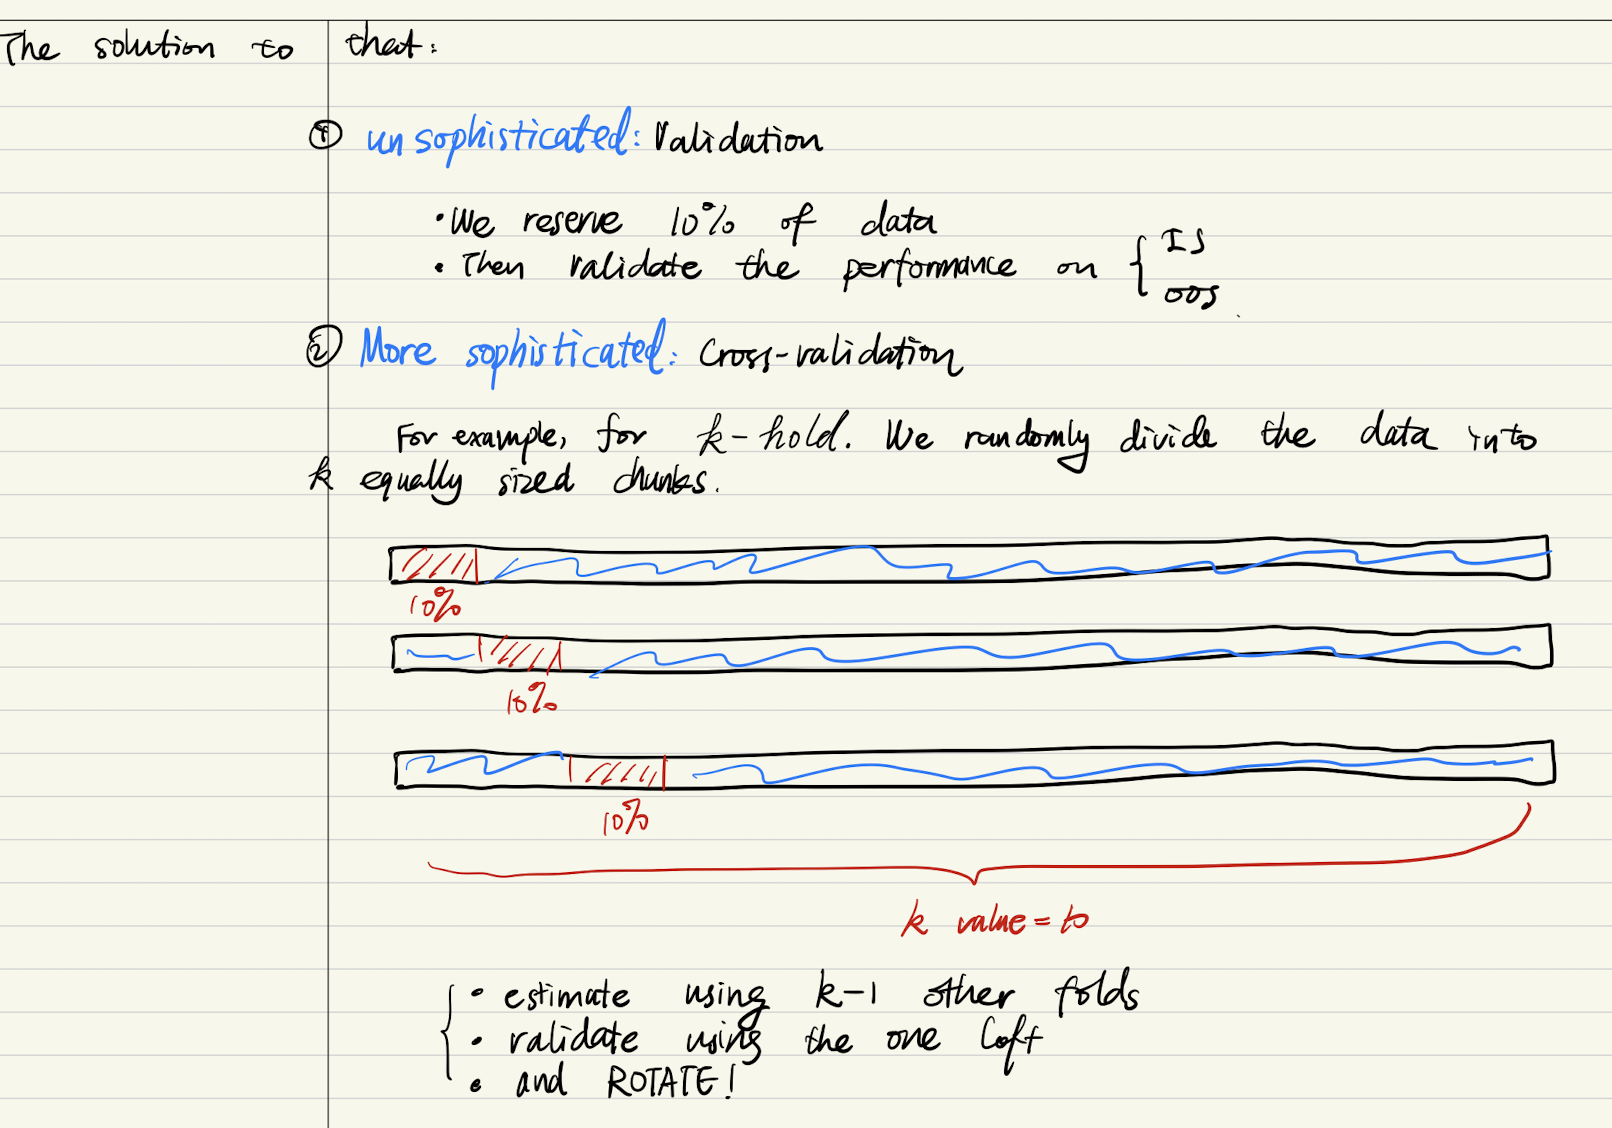 The solution to that:
① unsophisticated: Validation
• We reserve 10% of data
• Then validate the performance on { IS
OOS
② More sophisticated: Cross-validation
For example, for k-hold. We randomly divide the data into
k equally sized chunks.
10%
10%
10%
k value = 10
• estimate using k-1 other folds
• validate using the one left
• and ROTATE!